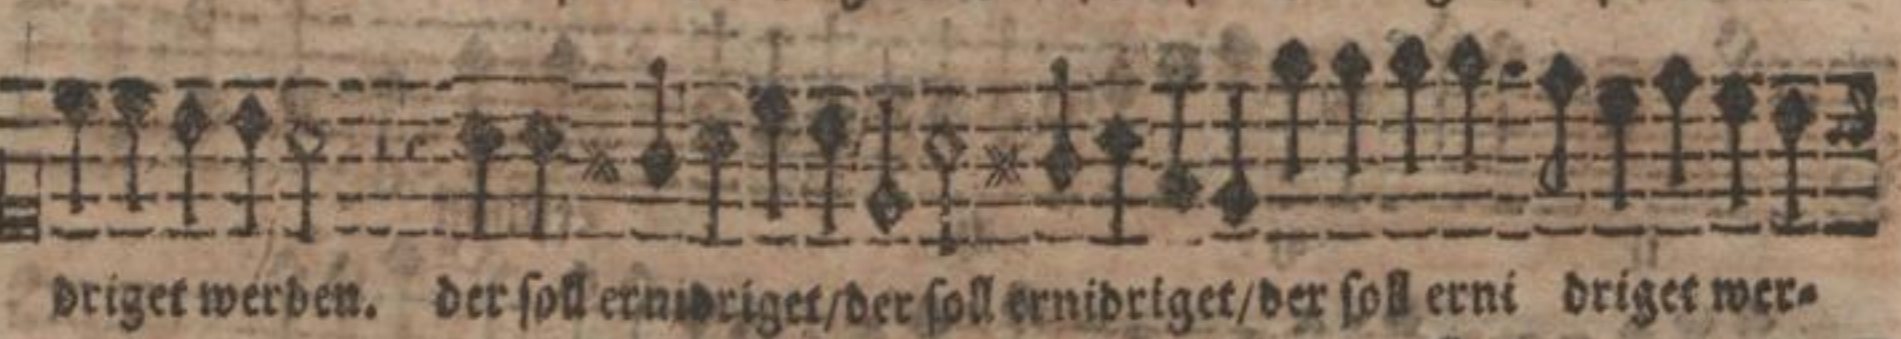 driget werden. der ſoll ernidriget/der ſoll ernidriget/der ſoll erni driget wer⸗